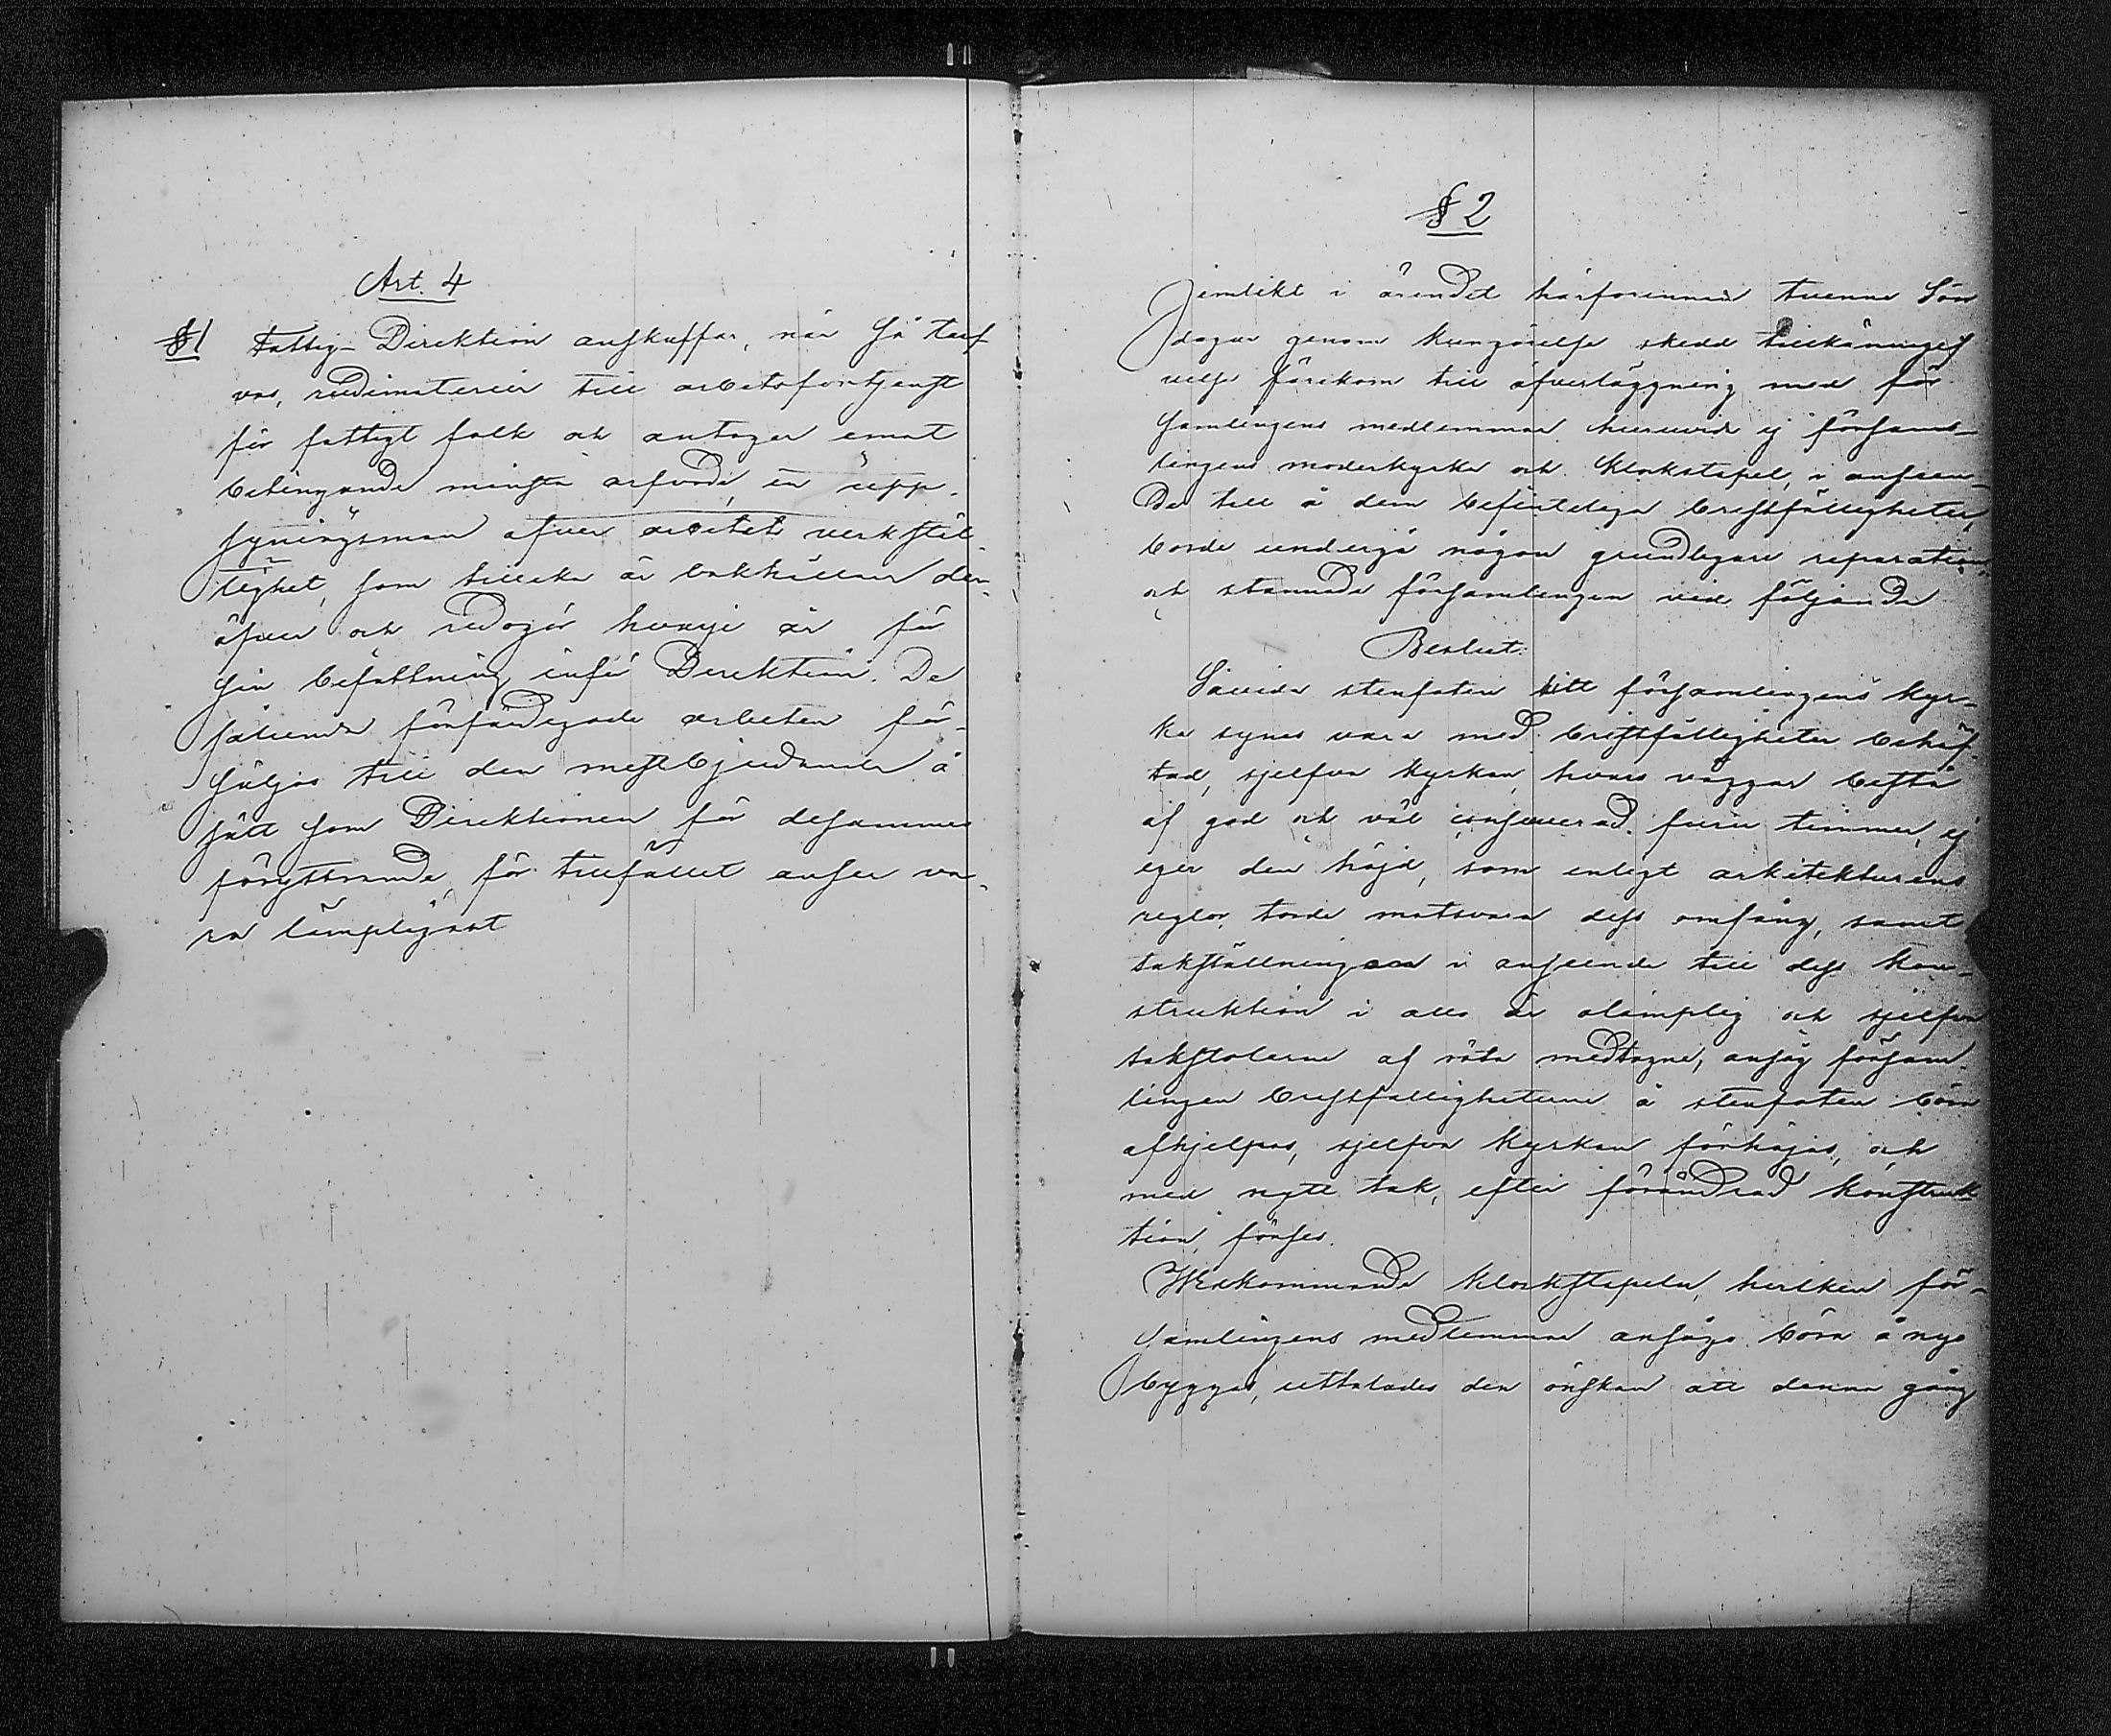 Art. 4
§ 1 Fattig-Direktion anskaffar, när så tarf
vas, rudimaterier till arbetsfortjenst
för fattigt folk och antager emot
betingande minsta arfvode, en upp-
syningsman öfver arbetets verkstäl-
lighet, som tillika är bokhållare der-
öfver och redogör hvarje år för
sin befattning inför Direktion. De
sålunda förfärdigade arbeten för-
säljas till den mestbjudande å
sätt som Direktionen för desammas
föryttrande, för tillfället anser va-
ra lämpligast
§ 2
Jemlikt i ärendet härförinnan tvenne Sön
dagar genom kungörelse skedd tillkännagif
velse förekom till öfverläggning med för-
samlingens medlemmar huruvida ej försam-
lingens moderkyrka och klockstapel, i anseen-
de till å dem befintliga bristfälligheter,
borde undergå någon grundligare reparation,
och stannade församlingen vid följande
Beslut:
Såvida stenfoten till församlingens kyr-
ka synes vara med bristfälligheter behäf-
tad, sjelfva kyrkan, hvars väggar bestå
af god och väl conserverad furu timmer, ej
eger den höjd, som enligt arkitekturens
reglor, torde motsvara dess omfång, samt
takställningen i anseende till dess kon-
struktion i allo är olämplig och sjelfva
takstolarne af röta medtagne, ansåg försam-
lingen bristfälligheterne å stenfoten böra
afhjelpas, sjelfva kyrkan förhöjas, och
med nytt tak, efter förändrad konstruk
tion, förses.
Vidkommande klockstapeln, hvilken för-
samlingens medlemmar ansågo böra å nyo
byggas, uttalades den önskan att denna gång